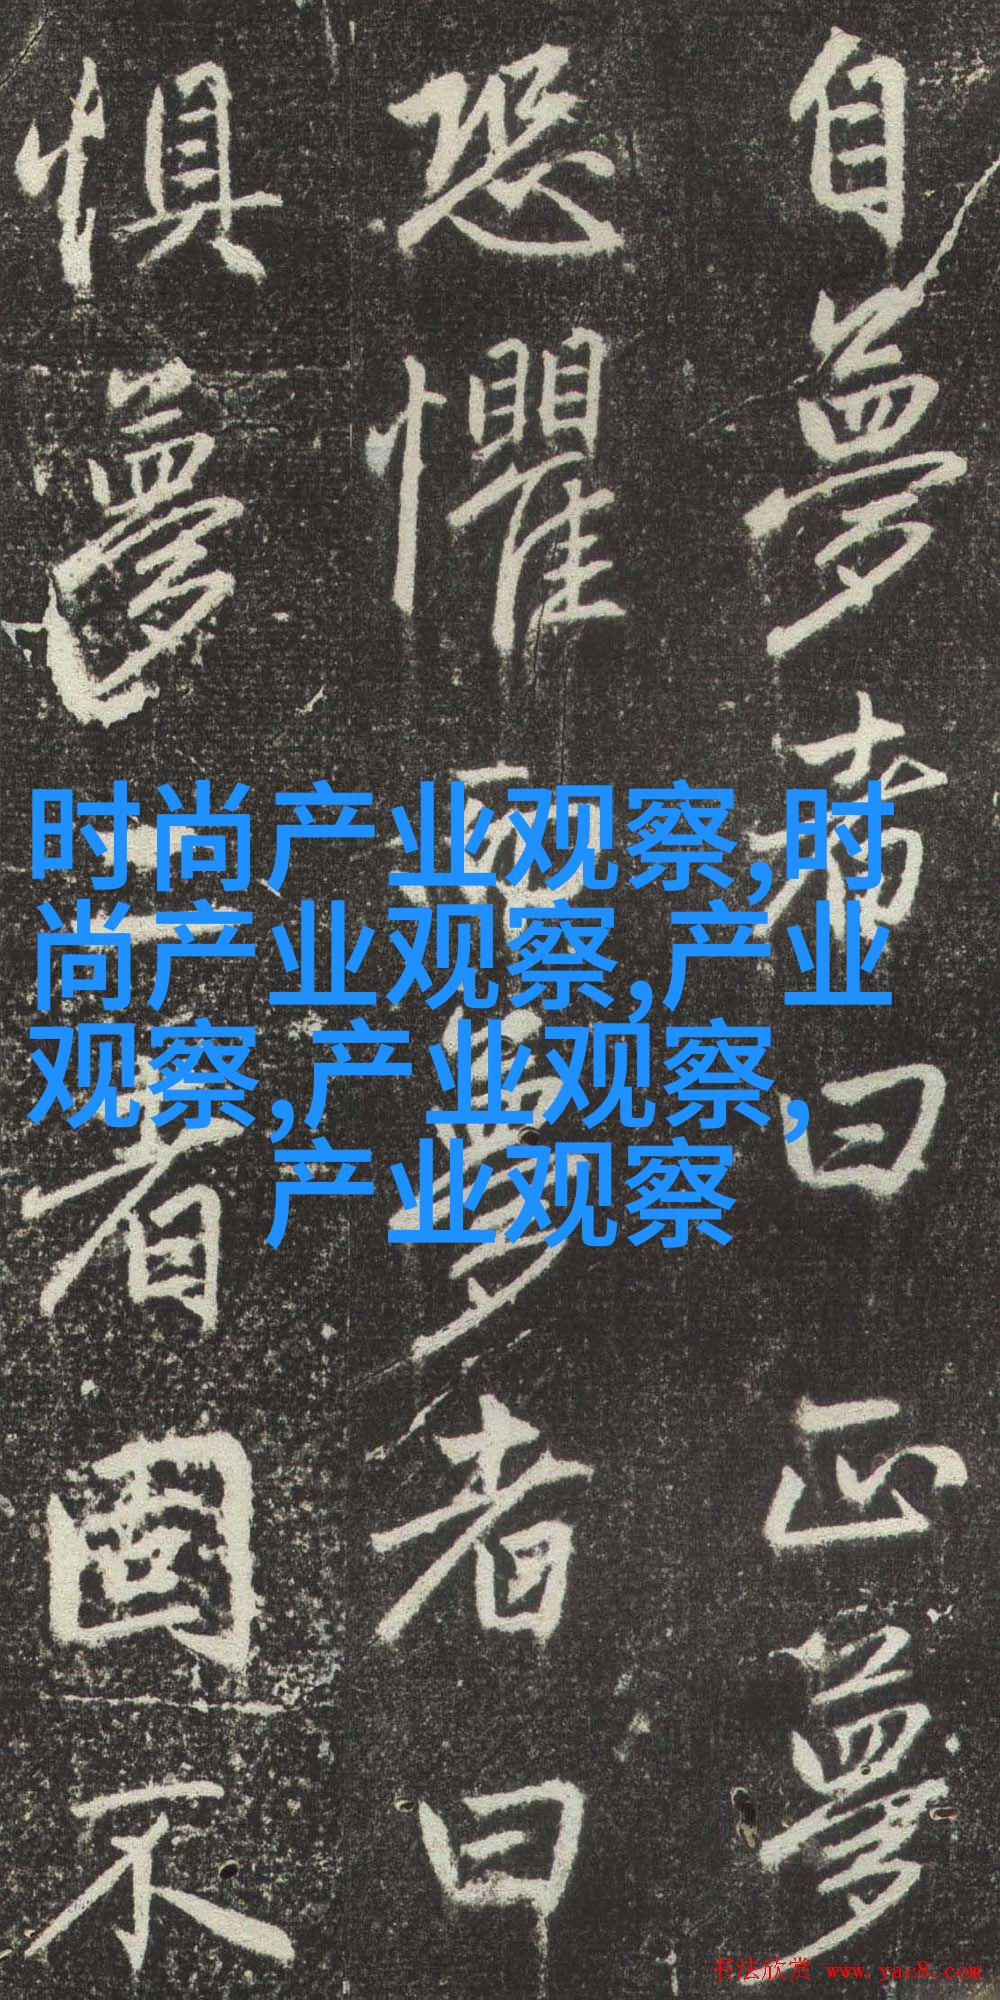 自夢者曰正夢
恐懼而夢者曰
懼夢二者固不
时尚产业观察,时
尚产业观察,产业
观察,产业观察,
产业观察
书法欣赏 www.yac8.com